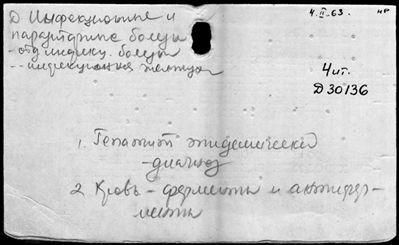 Д Инфекционные и
паразитарные болезни
- отд. инфекц. болезни
-- инфекционная желтуха
4.II.63.
Чит.
Д30136
1. Гепатит эпидемический
- диагноз
2. Кровь - ферменты и антифер-
менты